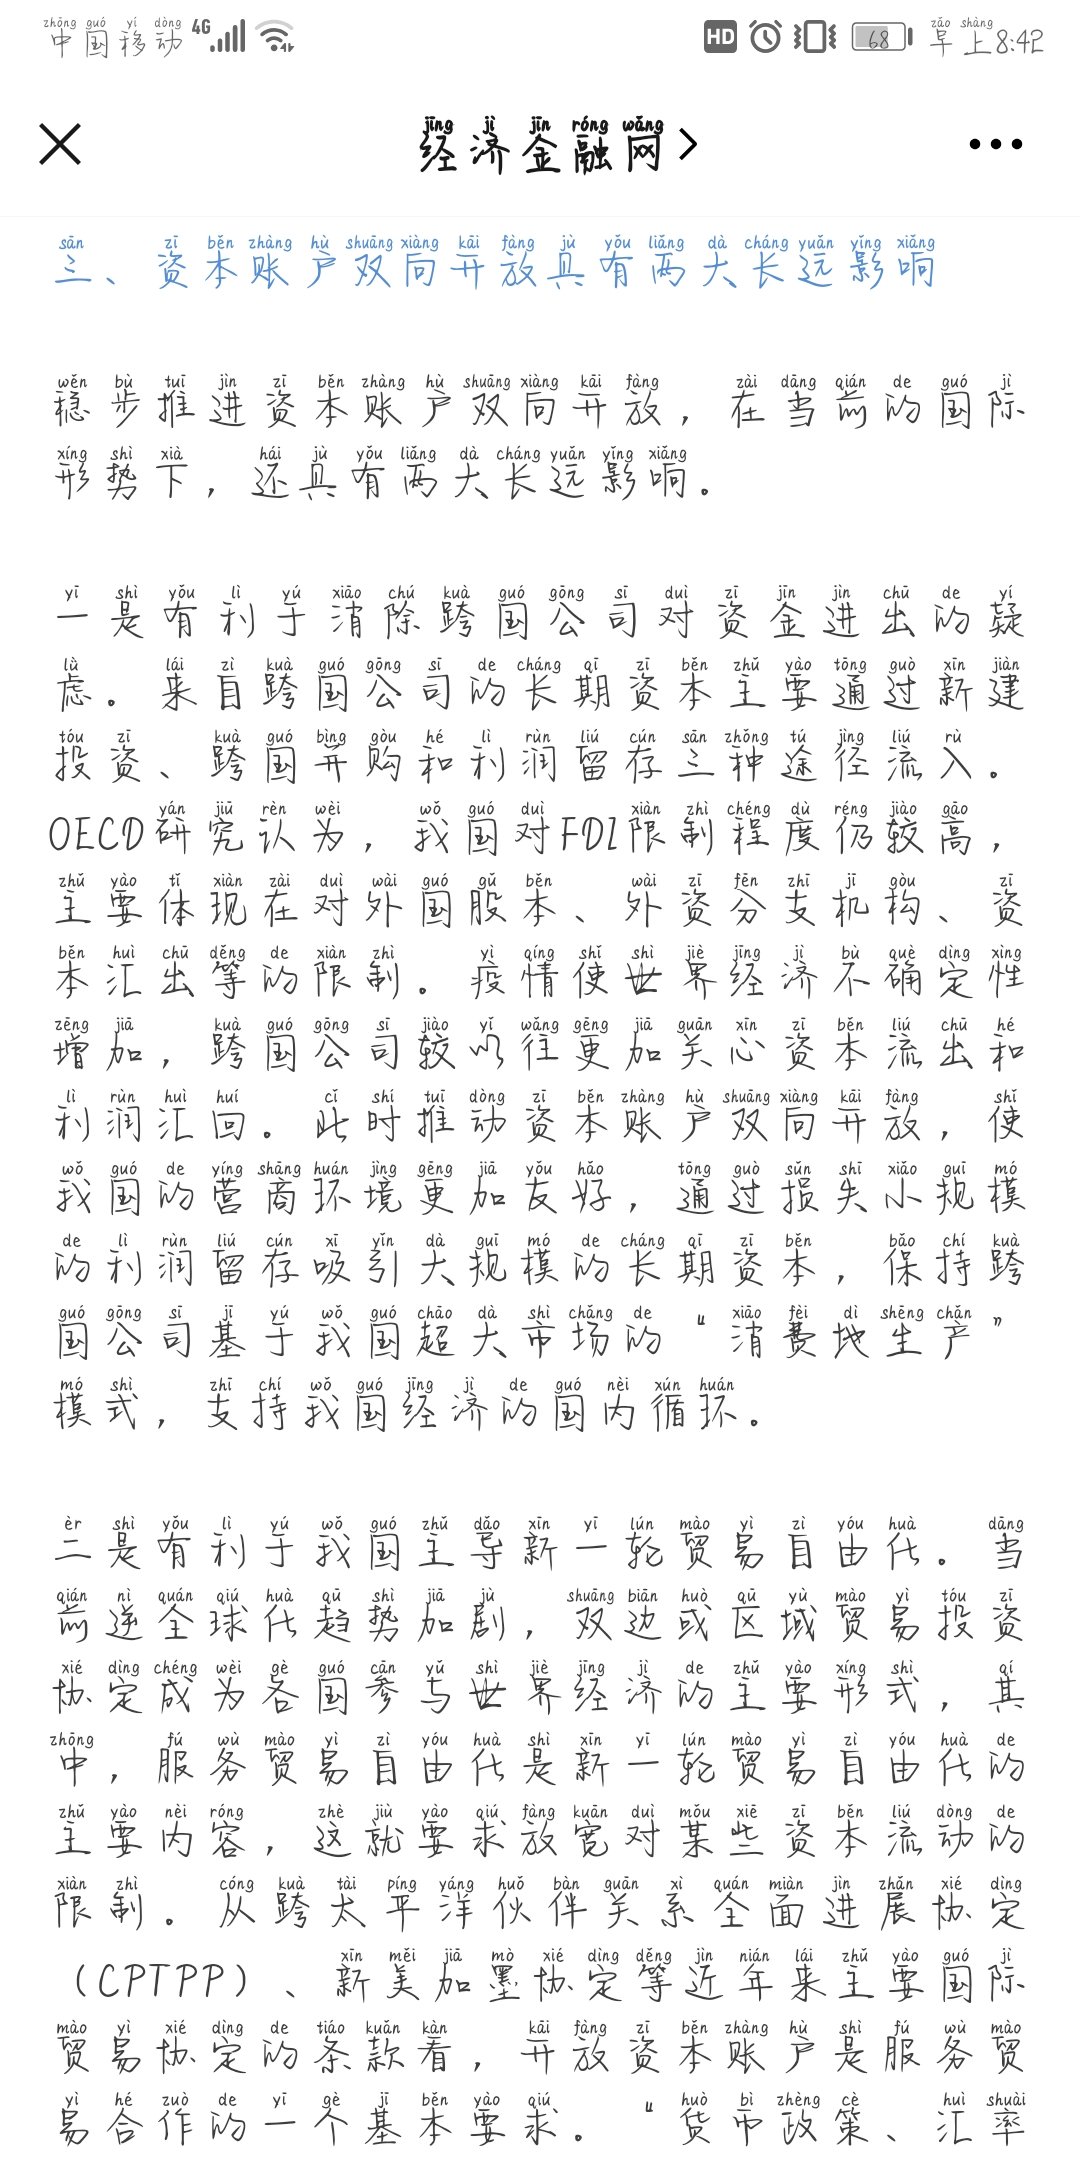 中国移动 4G HD 68 早上8:42
经济金融网
三、资本账户双向开放具有两大长远影响
稳步推进资本账户双向开放，在当前的国际
形势下，还具有两大长远影响。
一是有利于消除跨国公司对资金进出的疑
虑。来自跨国公司的长期资本主要通过新建
投资、跨国并购和利润留存三种途径流入。
OECD研究认为，我国对FDI限制程度仍较高，
主要体现在对外国股本、外资分支机构、资
本汇出等的限制。疫情使世界经济不确定性
增加，跨国公司较以往更加关心资本流出和
利润汇回。此时推动资本账户双向开放，使
我国的营商环境更加友好，通过损失小规模
的利润留存吸引大规模的长期资本，保持跨
国公司基于我国超大市场的“消费地生产”
模式，支持我国经济的国内循环。
二是有利于我国主导新一轮贸易自由化。当
前逆全球化趋势加剧，双边或区域贸易投资
协定成为各国参与世界经济的主要形式，其
中，服务贸易自由化是新一轮贸易自由化的
主要内容，这就要求放宽对某些资本流动的
限制。从跨太平洋伙伴关系全面进展协定
（CPTPP）、新美加墨协定等近年来主要国际
贸易协定的条款看，开放资本账户是服务贸
易合作的一个基本要求。“货币政策、汇率